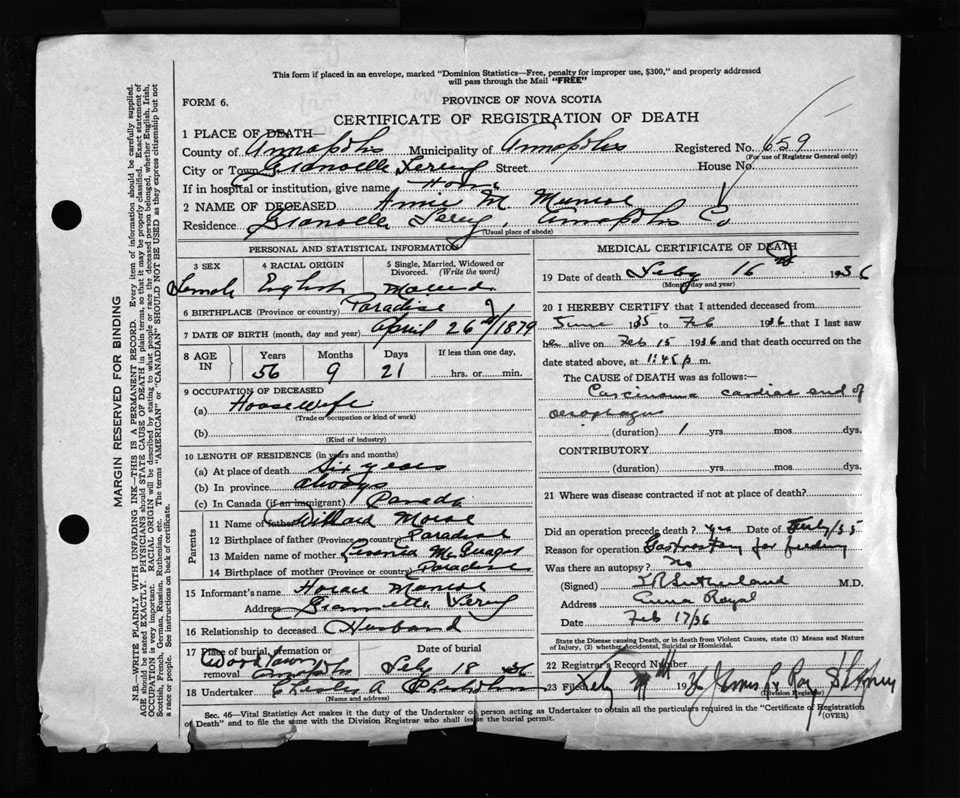 This form if placed in an envelope, marked "Dominion Statistics—Free, penalty for improper use, $300," and properly addressed
will pass through the Mail "FREE"
FORM 6.
PROVINCE OF NOVA SCOTIA
CERTIFICATE OF REGISTRATION OF DEATH
1 PLACE OF DEATH—
County of Annapolis Municipality of Annapolis Registered No. 659
(For use of Registrar General only)
City or Town Granville Ferry Street House No.
If in hospital or institution, give name Home
2 NAME OF DECEASED Annie M Munroe
Residence Granville Ferry, Annapolis Co
(Usual place of abode)
PERSONAL AND STATISTICAL INFORMATION
3 SEX 4 RACIAL ORIGIN 5 Single, Married, Widowed or Divorced. (Write the word)
Female English Married
6 BIRTHPLACE (Province or country) Paradise
7 DATE OF BIRTH (month, day and year) April 26 1879
8 AGE IN Years Months Days If less than one day,
56 9 21 hrs. or min.
9 OCCUPATION OF DECEASED
(a) House Wife
(Trade or occupation or kind of work)
(b)
(Kind of industry)
10 LENGTH OF RESIDENCE (in years and months)
(a) At place of death Six years
(b) In province always
(c) In Canada (if an immigrant) Canada
Parents
11 Name of father Willard Morse
12 Birthplace of father (Province or country) Paradise
13 Maiden name of mother
14 Birthplace of mother (Province or country) Paradise
15 Informant's name Horace Munroe
Address Granville Ferry
16 Relationship to deceased Husband
17 Place of burial, cremation or removal Date of burial
Annapolis Feby 18 1936
18 Undertaker Charles A
(Name and address)
MEDICAL CERTIFICATE OF DEATH
19 Date of death Feby 16 1936
(Month, day and year)
20 I HEREBY CERTIFY that I attended deceased from
June 1935 to Feb 1936 that I last saw
her alive on Feb 15 1936 and that death occurred on the
date stated above, at 1:45 p m.
The CAUSE OF DEATH was as follows:—
Carcinoma cardiac end of
oesophagus
(duration) 1 yrs. mos. dys.
CONTRIBUTORY
(duration) yrs. mos. dys.
21 Where was disease contracted if not at place of death?
Did an operation precede death? Yes Date of July/35
Reason for operation Gastrostomy for feeding
Was there an autopsy? No
(Signed) Sutherland M.D.
Address Anna Royal
Date Feb 17/36
State the Disease causing Death, or in death from Violent Causes, state (1) Means and Nature
of Injury, (2) whether Accidental, Suicidal or Homicidal.
22 Registrar's Record Number
23 Filed Feby 1936 James
(Division Registrar)
Sec. 46—Vital Statistics Act makes it the duty of the Undertaker or person acting as Undertaker to obtain all the particulars required in the "Certificate of Registration
of Death" and to file the same with the Division Registrar who shall issue the burial permit.
(OVER)
MARGIN RESERVED FOR BINDING
N.B.—WRITE PLAINLY WITH UNFADING INK—THIS IS A PERMANENT RECORD. Every item of information should be carefully supplied.
AGE should be stated EXACTLY. PHYSICIANS should STATE CAUSE OF DEATH in plain terms, so that it may be properly classified. Exact statement of
OCCUPATION is very important. RACIAL ORIGIN will be described by stating to what people or race the deceased person belonged, whether English, Irish,
Scottish, French, German, Russian, Ruthenian, etc. The terms "AMERICAN" or "CANADIAN" SHOULD NOT BE USED as they express citizenship but not
a race or people. See instructions on back of certificate.